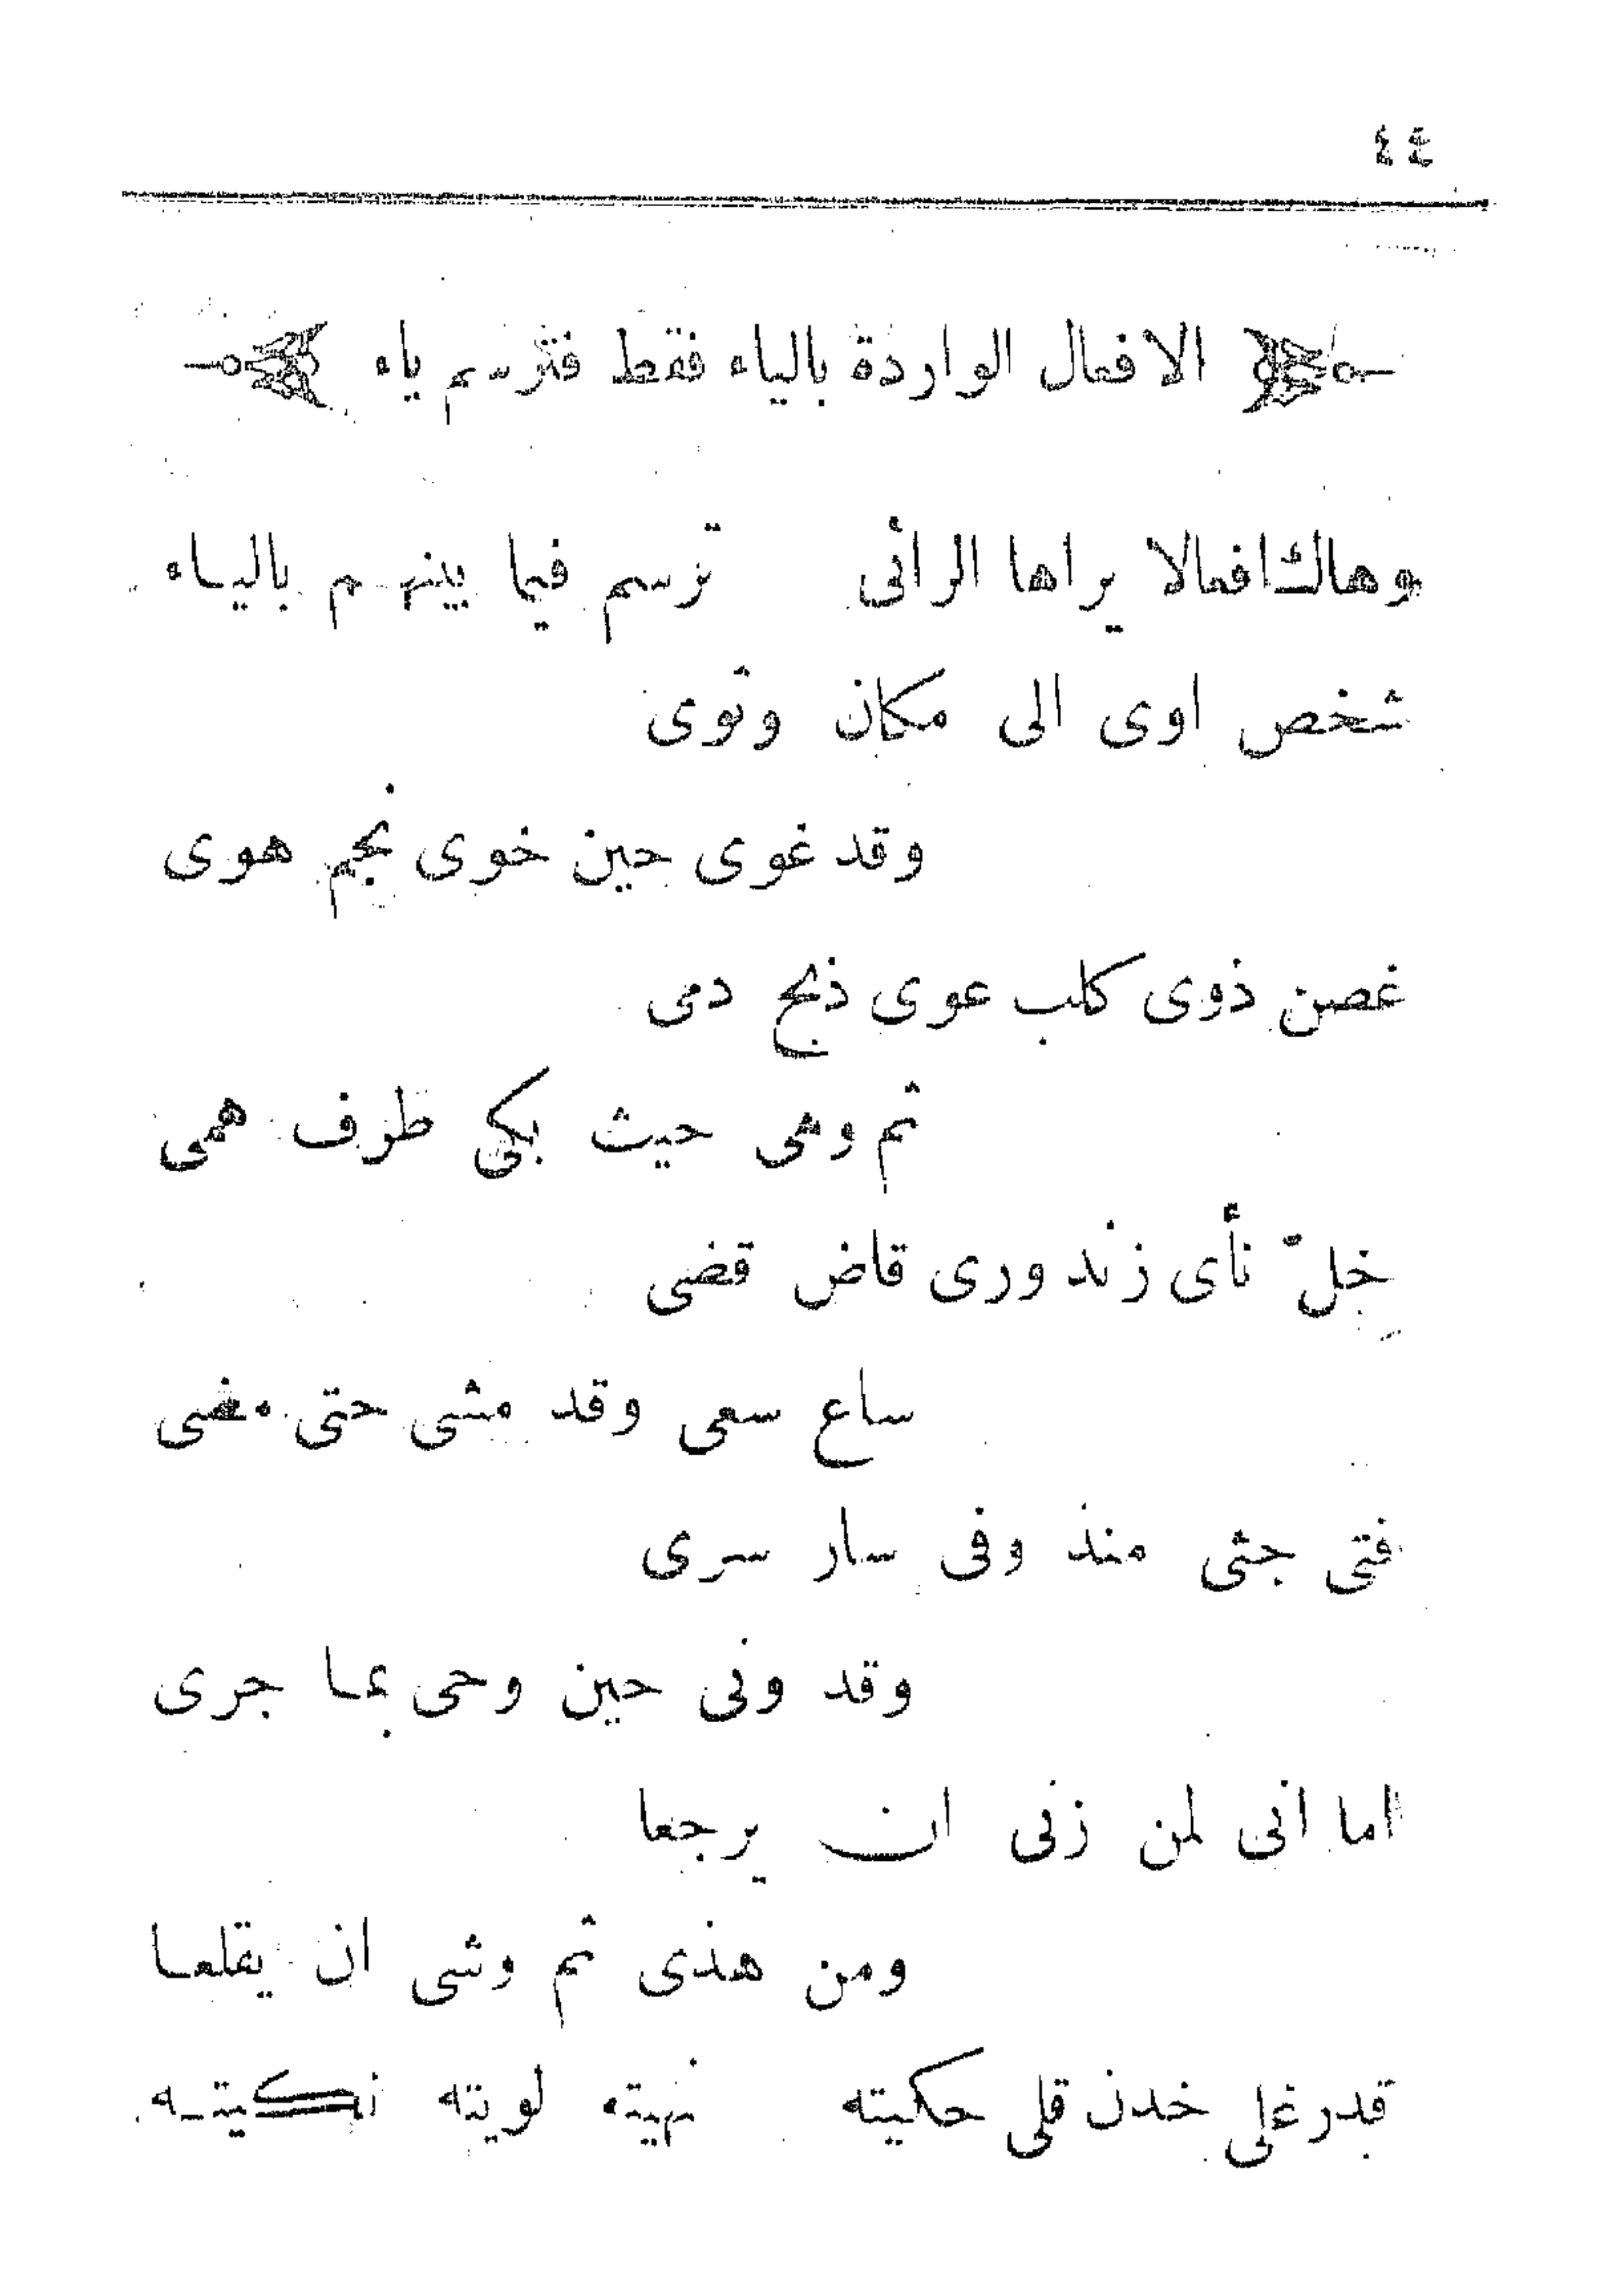 ٤٤
الافعال الواردة بالياء فقط فترسم ياء
وهاك افعالا يراها الرائى ترسم فيما بينهم باليـاء
شخص اوى الى مكان وثوى
وقد غوى حين خوى نجم هوى
غصن ذوى كلب عوى ذبح دمى
ثم وهى حيث بكى طرف همى
خِلّ نأى زند ورى قاض قضى
ساع سعى وقد مشى حتى مضى
فتى جثى منذ وفى سار سرى
وقد ونى حين وحى بمـا جرى
اما انى لمن زنى ان يرجعا
ومن هذى ثم وشى ان يقلعـا
قدر غلى خدن قلى حكيته نهيته لويته نكيتـه